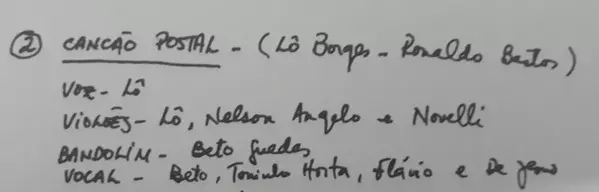 ② CANÇÃO POSTAL - (Lô Borges - Ronaldo Bastos)
VOZ - Lô
VIOLÕES - Lô, Nelson Angelo e Novelli
BANDOLIM - Beto Guedes
VOCAL - Beto, Toninho Horta, Flávio e De